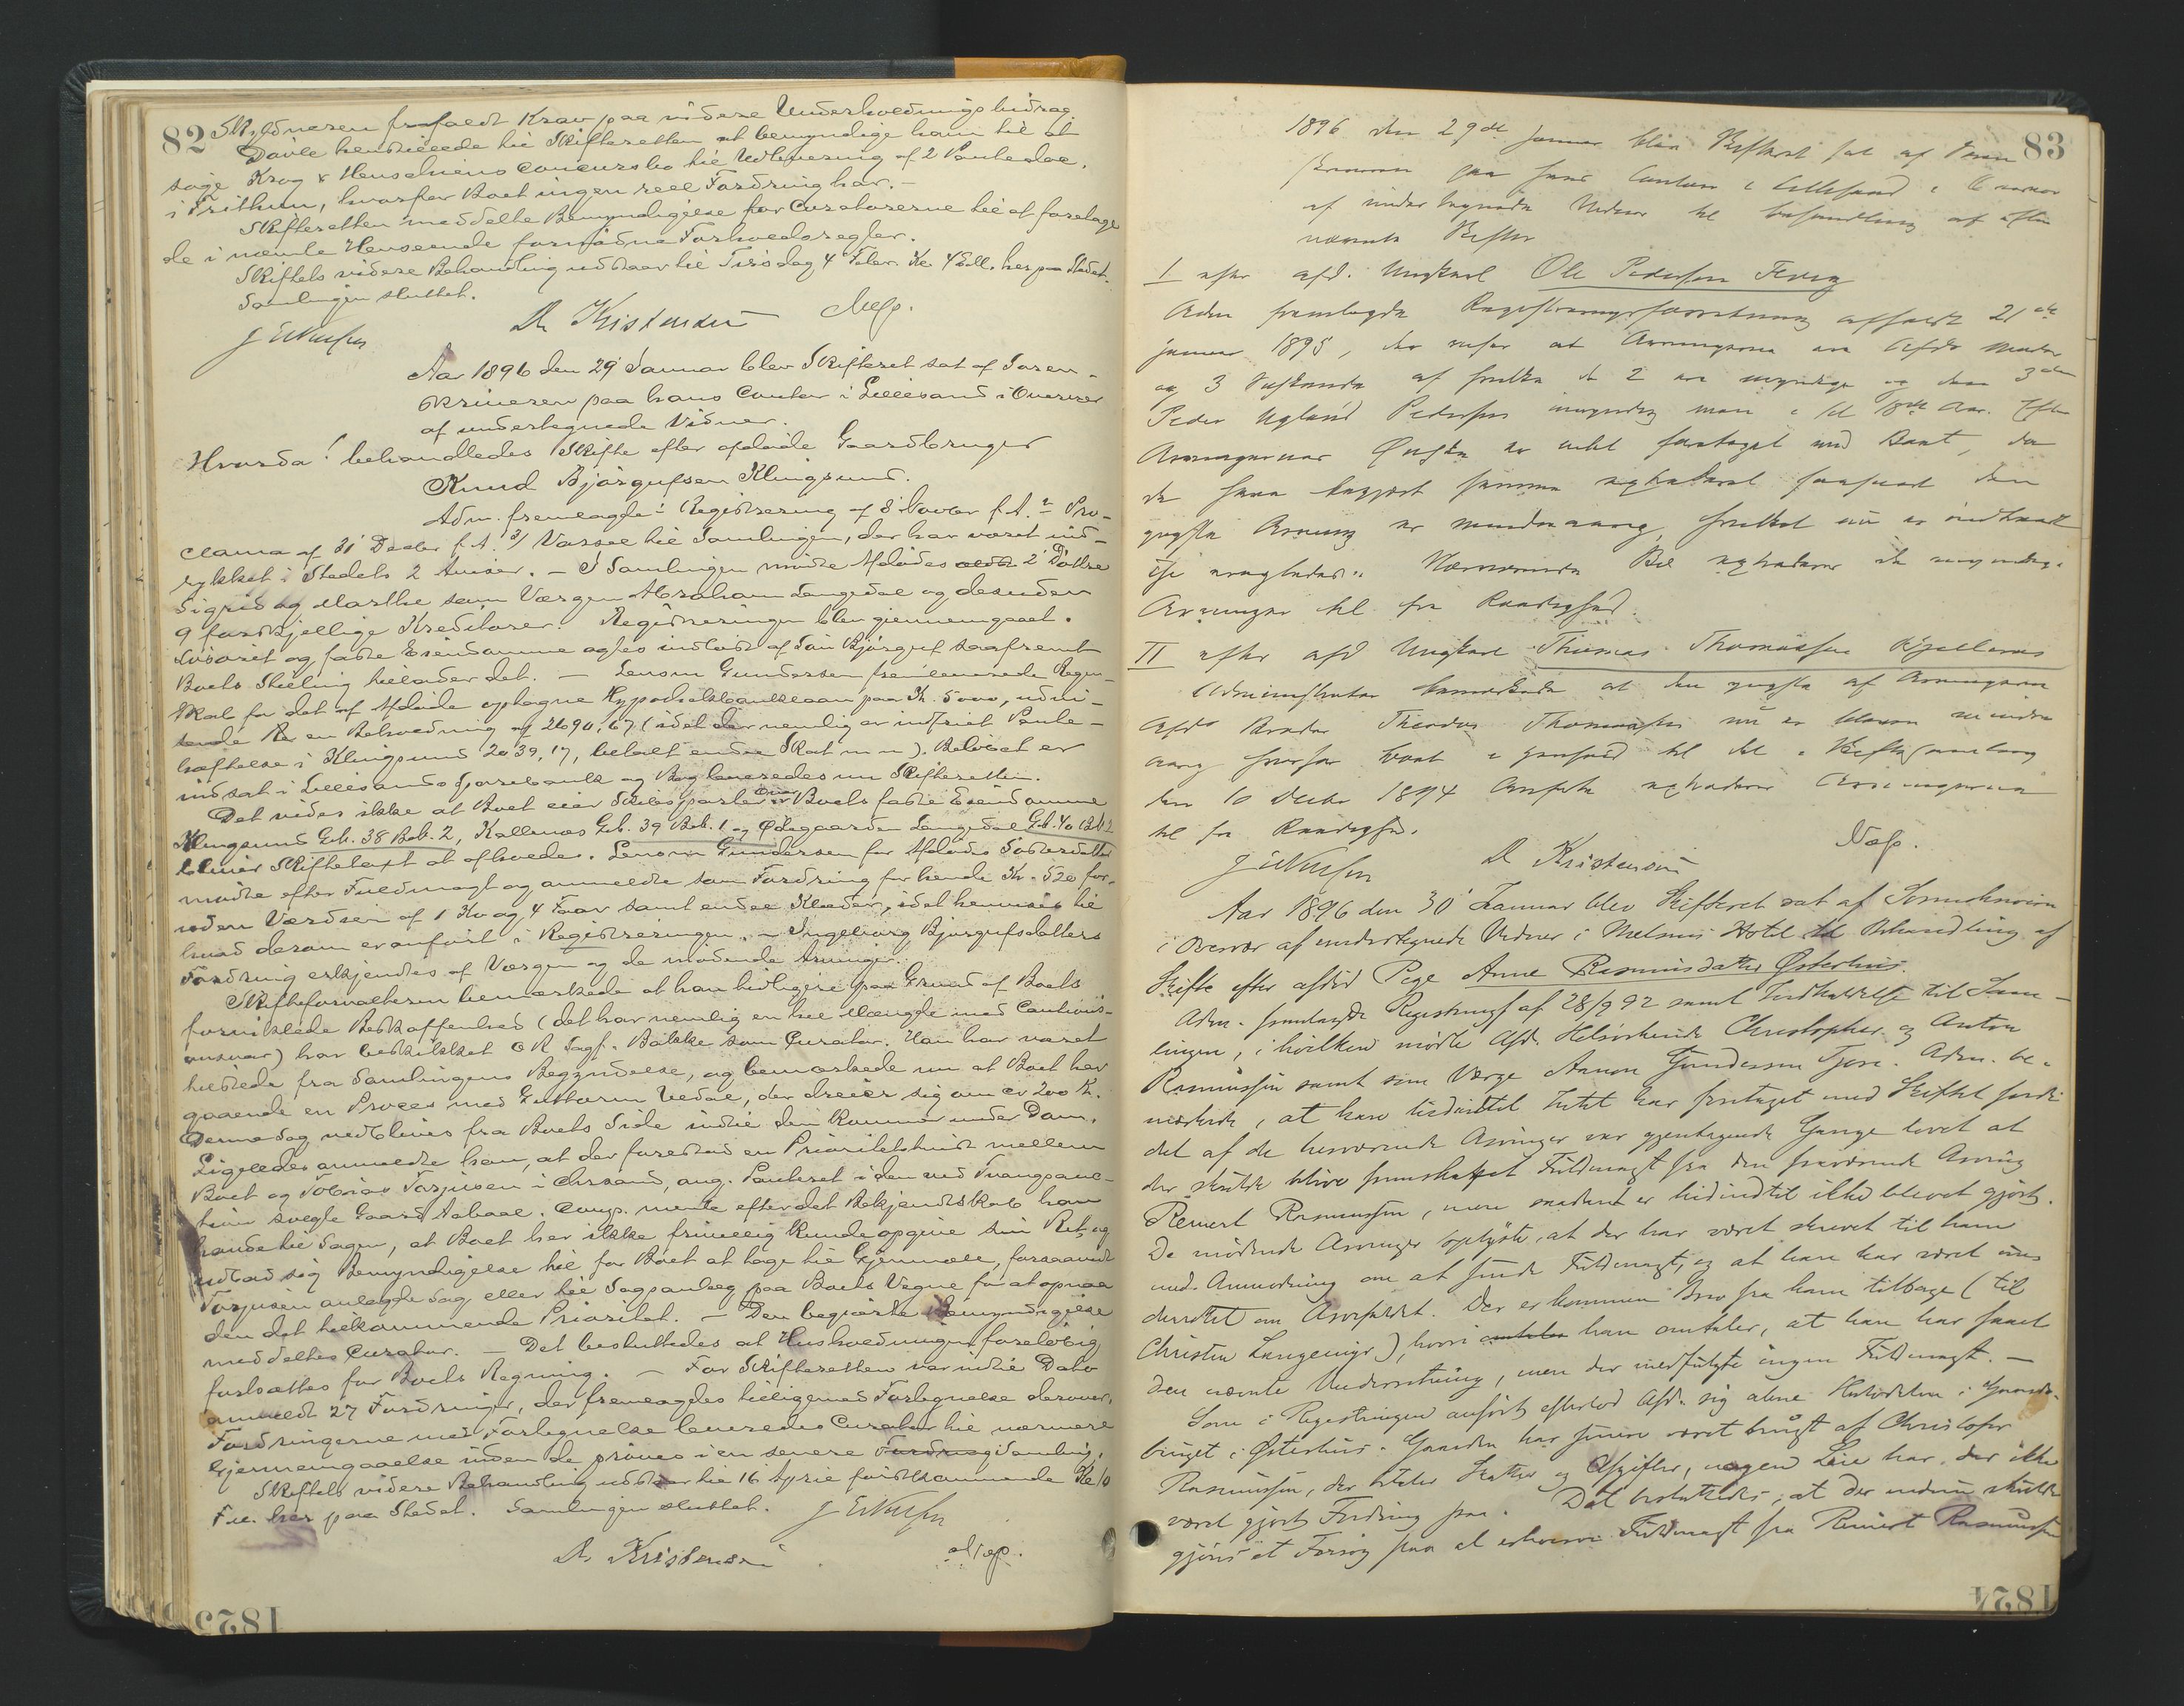 82
Skyldneren frafaldt Krav paa videre Underholdningsbidrag.
Dovle henstillede til Skifteretten at bemyndige ham til at
søge Krog & Henschiens Concursbo til Udlevering af 2 Panteobl.
i Frithun, hvorfor Boet ingen reel Fordring har. -
Skifteretten meddelte Bemyndigelse for Curatorerne til at foretage
de i nævnte Henseende fornødne Forholdsregler.
Skiftets videre Behandling udstaar til Tirsdag 4 Febr. Kl. 4 Eftl. her paa Stedet.
Samlingen sluttet.
D. Kristensen
Aar 1896 den 29 Januar blev Skifteret sat af Soren-
skriveren paa hans Contor i Lillesand i Overvær
af undertegnede Vidner.
Hvorda! behandledes Skifte efter afdøde Gaardbruger
Knud Bjørgufsen Klingsund.
Adm. fremlagde 1 Registrering af 8 Novbr f. A. 2 Pro-
clama af 31 Decbr f. A. 3/ Varsel til Samlingen, der har været ind-
rykket i Stedets 2 Aviser. - I Samlingen mødte Afdødes 2 Døttre
Sigrid og Marthe, som Værgen Abraham Langedal og desuden
9 forskjellige Kreditorer. Registreringen blev gjennemgaaet.
Løsøret og faste Eiendomme agtes indløst af Søn Bjørguf saafremt
Boets Stilling tillader det. - Lensm Gundersen fremleverede Regn-
skab for det af Afdøde optagne Hypothekbanklaan paa Kr. 5000, udvi-
sende en Beholdning af 2690,67 (idet der nemlig er indfriet Pante-
hæftelse i Klingsund 2039,17, betalt endel Skat m m). Beløbet er
indsat i Lillesands Sparebank og Bog leveredes nu Skifteretten.
Det vides ikke at Boet eier Skibsparter. Over Boets faste Eiendomme
Klingsund Gb. 38 Bb. 2, Kallenes Gb. 39 Bb. 1 og Ødegaarden Langedal Gb. 40 Bb 2
bliver Skiftetaxt at afholde. Lensm Gundersen for Afdødes Søsterdatter
mødte efter Fuldmagt og anmeldte som Fordring for hende Kr. 520 for-
uden Værdien af 1 Ko og 4 Faar samt endel Klæder, idet henvises til
hvad derom er anført i Registreringen. - Ingeborg Bjørgufsdatters
Fordring erkjendtes af Værgen og de mødende Arvinger.
Skifteforvalteren bemærkede at han tidligere paa Grund af Boets
forviklede Beskaffenhed (det har nemlig en hel Mængde med Cautions-
ansvar) har beskikket O R Sagf. Bakke som Curator. Han har været
tilstede fra Samlingens Begyndelse, og bemærkede nu at Boet har
gaaende en Proces med Guttorm Vedal, der dreier sig om ca 200 K.
Denne Sag vedblives fra Boets Side indtil den kommer under Dom.
Ligeledes anmeldte han, at der forestod en Prioritetstvist mellem
Boet og Tobias Torjusen i Chrsand, ang. Panteret i den ved Tvangsauc-
tion solgte Gaard Aabaal. Comp. mente efter det Bekjendtskab han
havde til Sagen, at Boet her ikke frivillig kunde opgive sin Ret, og
udbad sig Bemyndigelse til for Boet at tage til Gjenmæle, forsaavidt
Torjusen anlagde Sag eller til Sagsanlæg paa Boets Vegne for at opnaa
den det tilkommende Prioritet. - Den begjærte Bemyndigelse
meddeltes Curator. - Det besluttedes at Husholdningen foreløbig
fortsættes for Boets Regning. - For Skifteretten var indtil Dato
anmeldt 27 Fordringer, der fremlagdes tilligemed Fortegnelse derover.
Fordringerne med Fortegnelse leveredes Curator til nærmere
Gjennemgaaelse inden de prøves i en senere Samling.
Skiftets videre Behandling udstaar til 16 April førstkommende Kl 10
Fm. her paa Stedet. Samlingen sluttet.
D. Kristensen
83
1896 den 29de Januar blev Skifteret sat af Soren
skriveren paa hans Contor i Lillesand i Overvær
af undertegnede Vidner til Behandling af efter
nævnte Skifter
I efter afd. Ungkarl Ole Pedersen Tveig
Adm fremlagde Registreringsforretning afholdt 21de
Januar 1895, der viser at Arvingerne ere Afdøs Moder
og 3 Søskende af hvilke de 2 ere myndige og den 3die
Peder Ugland Pedersen umyndig men i sit 18de Aar. Efter
Arvingernes Ønske er intet foretaget med Boet, da
de have begjært samme extraderet saasnart den
yngste Arving er mindreaarig, hvilket nu er indtraadt
Nærværende Bo extraderes de myndige
Arvinger til fri Raadighed.
II efter afd Ungkarl Thomas Thomassen Kjellenes
Administrator bemærkede at den yngste af Arvingerne
Afds Broder Theodor Thomassen nu er bleven mindre
aarig hvorfor Boet i Henhold til det i Skiftesamling
den 10 Decbr 1894 Anførte extraderes Arvingerne
til fri Raadighed.
D Kristensen
Aar 1896 den 30 Januar blev Skifteret sat af Sorenskriveren
i Overvær af undertegnede Vidner i Hotel til Behandling af
Skifte efter afdød Pige Anne Rasmusdatter Østerhus.
Adm. fremlagde Registringsf af 28/9 92 samt Indkaldelse til Sam-
lingen, i hvilken mødte Afd. Helsøskende Christopher og Anton
Rasmussen samt som Værge Aanon Gundersen Tjore. Adm. be-
mærkede, at han hidindtil Intet har foretaget med Skiftet fordi
det af de herværende Arvinger var gjentagende Gange lovet at
der skulde blive fremskaffet Fuldmagt fra den fraværende Arving
Reinert Rasmussen, men saadant er hidindtil ikke blevet gjort.
De mødende Arvinger oplyste, at der har været skrevet til ham
med Anmodning om at sende Fuldmagt, og at han har været un-
derrettet om Arvefaldet. Der er kommen Brev fra ham tilbage (til
Christen Langemyr), hvori han omtaler, at han har faaet
den nævnte Underretning, men der medfulgte ingen Fuldmagt. -
Som i Registringen anført efterlod Afd. sig alene Hartedelen i Gaards-
bruget i Østerhus. Gaarden har siden været brugt af Christofer
Rasmussen, der betaler Skatter og Afgifter, nogen Leie har der ikke
været gjort Fordring paa. Det besluttedes, at der endnu skulde
gjøres et Forsøg paa at erhverve Fuldmagt fra Reinert Rasmussen